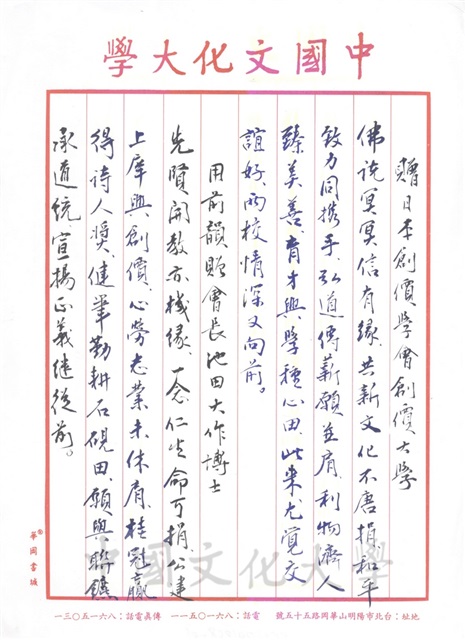 中國文化大學
贈日本創價學會創價大學
佛說冥冥信有緣、共新文化不唐捐、和平
致力同携手、弘道傳薪願並肩、利物濟人
臻美善、育才興學種心田、此来尤覺交
誼好、兩校情深又向前。
用前韻贈會長池田大作博士
先賢開教亦機緣、一念仁命可捐、公建
上庠興創價、心勞志業未休肩、桂冠贏
得诗人獎、健筆勤耕石硯田、願與聯鑣
承道統、宣揚正義継從前。
華岡書城
地址：台北市陽明山華岡路五十五號 電話：八六一〇五一一 傳眞電話：八六一五〇三一
中國文化大學